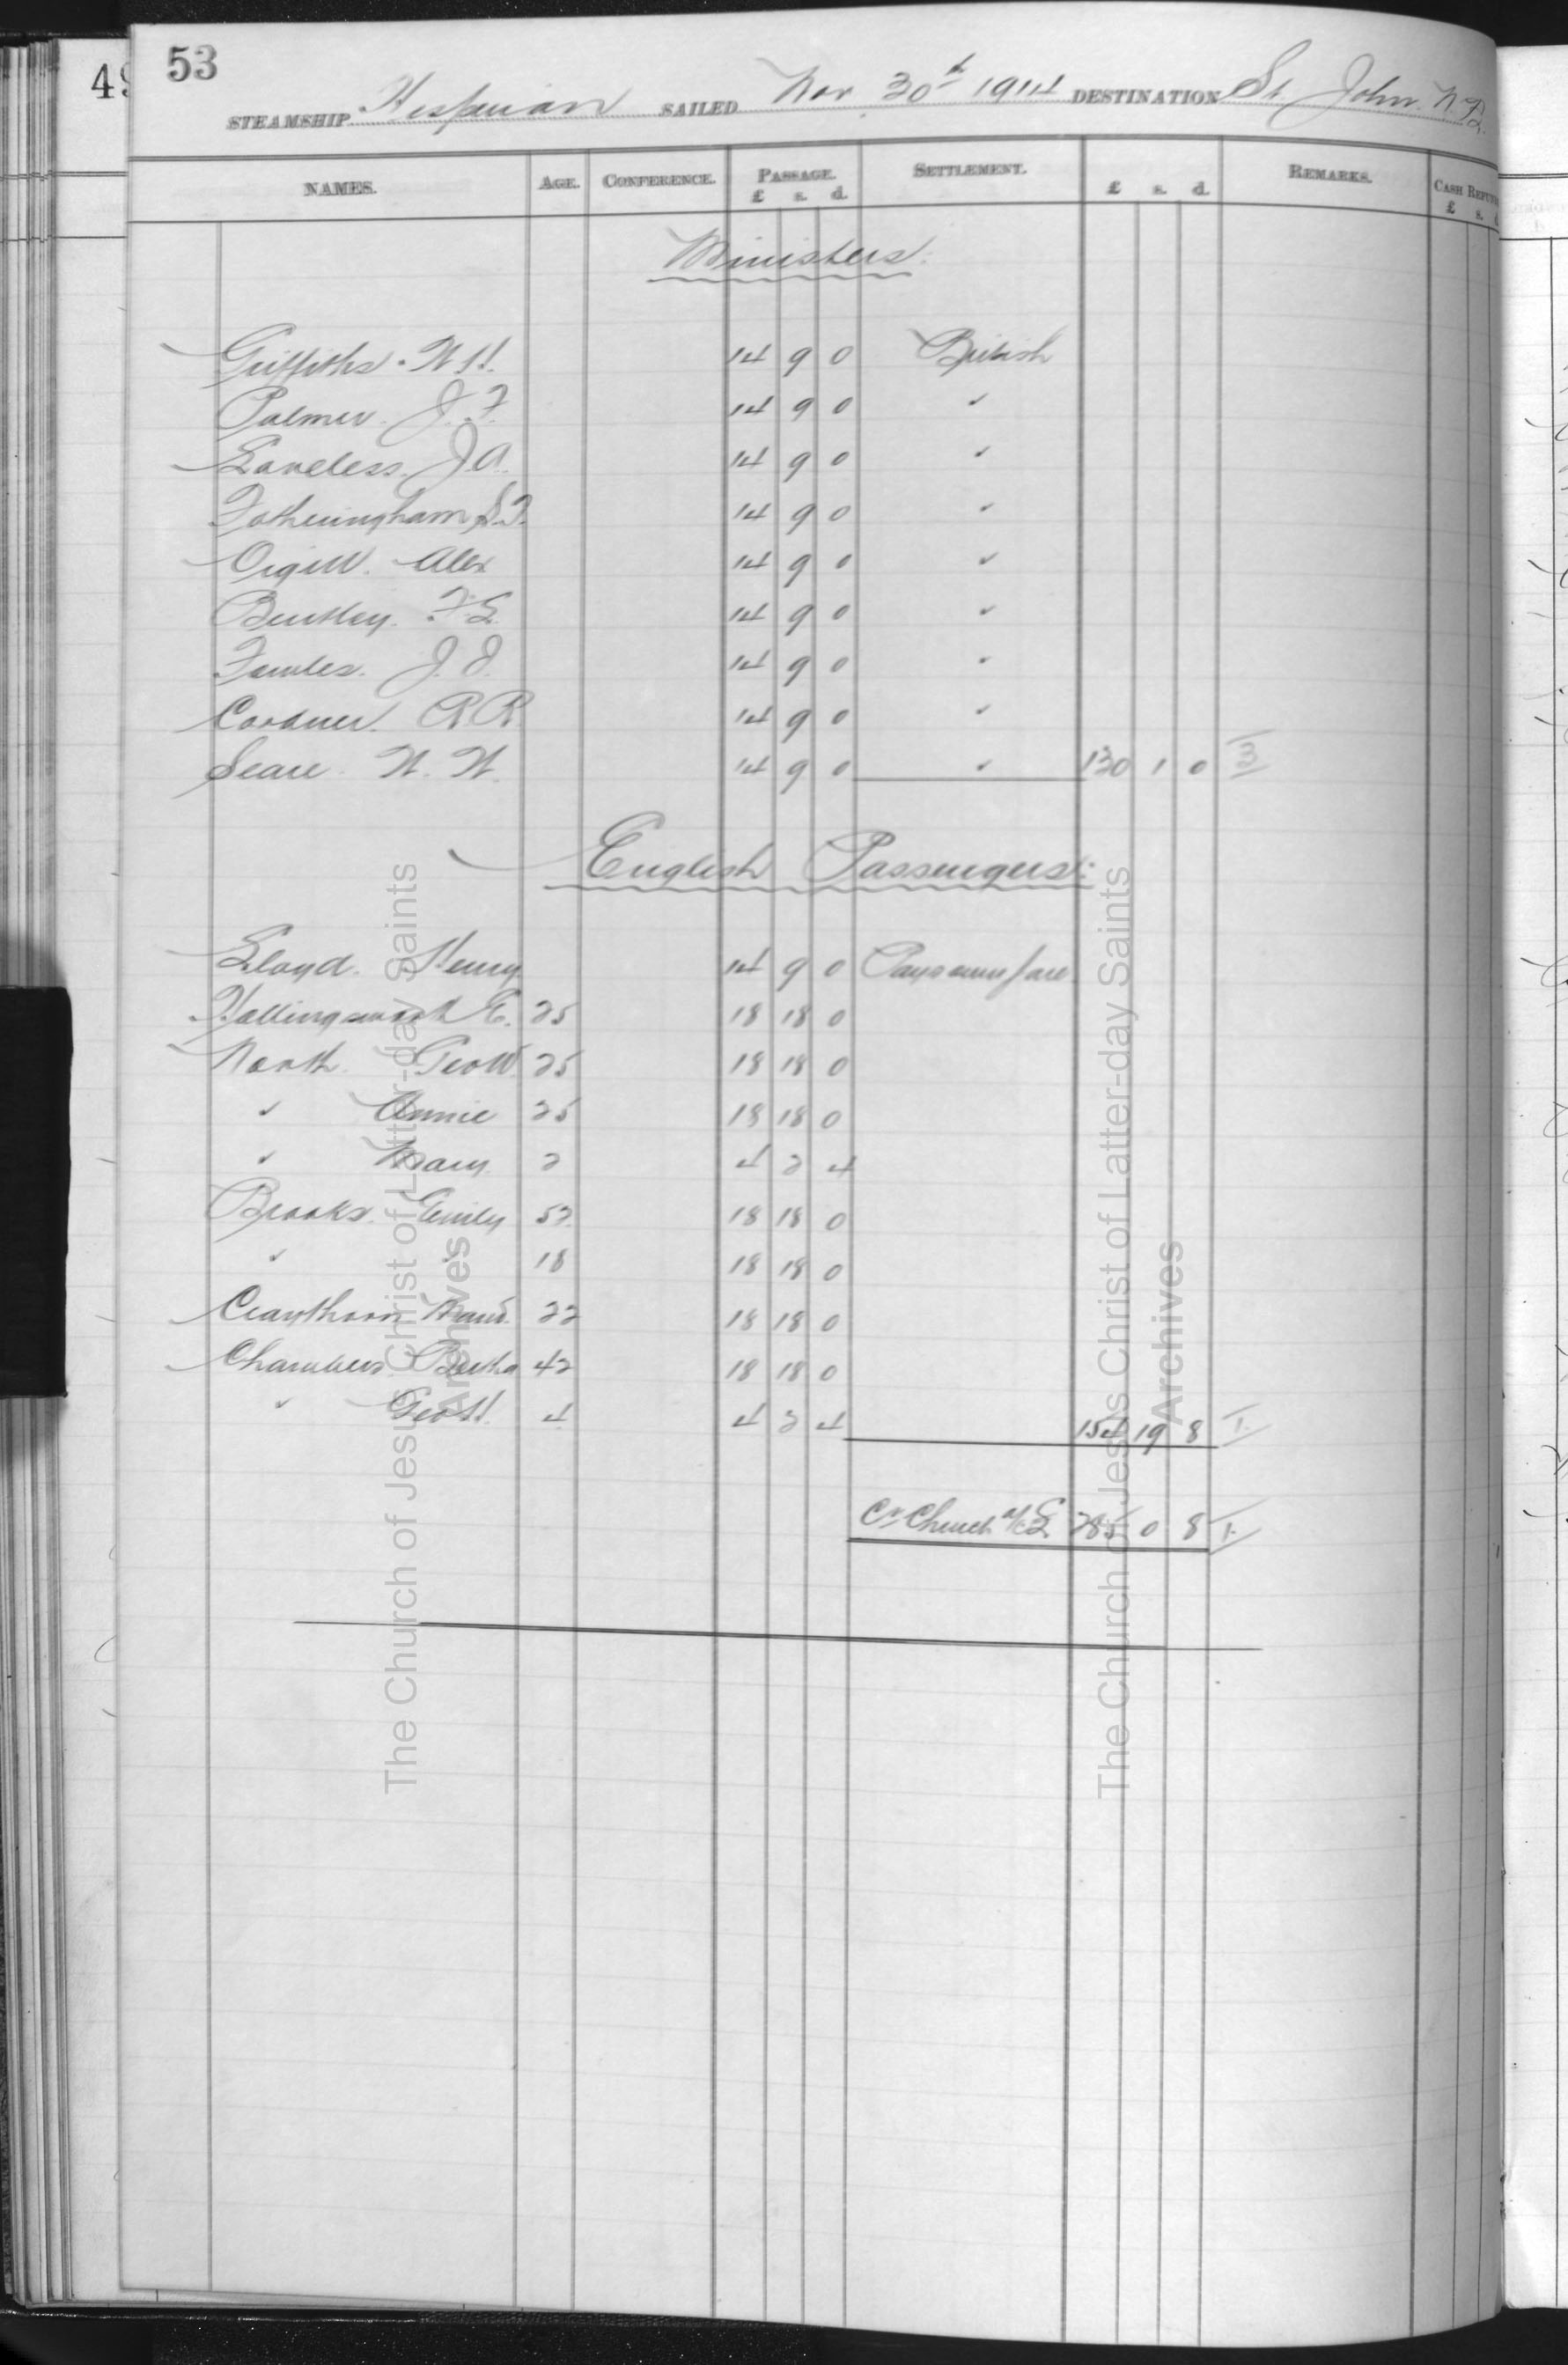 49
53
STEAMSHIP Hesperian SAILED Nov 30th 1914 DESTINATION St John N.B.
NAMES. AGE. CONFERENCE. PASSAGE. £ s. d. SETTLEMENT. £ s. d. REMARKS. CASH £ s.
Ministers:
Griffiths W H. 14 9 0 British
Palmer. J. F. 14 9 0 "
Loveless. J.A. 14 9 0 "
Fotheringham 14 9 0 "
Orgill. Alex 14 9 0 "
Bentley. F.E. 14 9 0 "
Fowles. J. J. 14 9 0 "
Cordner. R R 14 9 0 "
Seare W. W. 14 9 0 " 130 1 0 3
English Passengers:
Lloyd. Henry 14 9 0 Pays own fare
Hollingsworth E. 25 18 18 0
North. Geo W. 25 18 18 0
" Annie 25 18 18 0
" Mary 2 4 2 4
Brooks. Emily 52 18 18 0
" " 18 18 18 0
Craythorn Maud. 22 18 18 0
Chambers Bertha 42 18 18 0
" Geo H. 4 4 2 4 154 19 8 1.
Cr Church a/c £ 285 0 8 1.
The Church of Jesus Christ of Latter-day Saints
Archives
The Church of Jesus Christ of Latter-day Saints
Archives